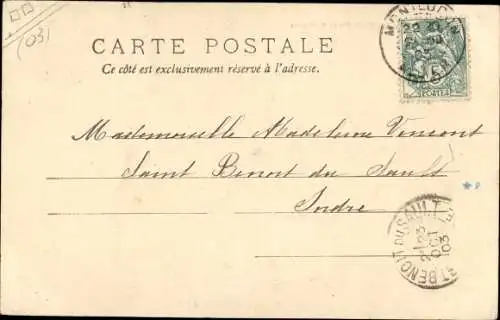 (031
CARTE POSTALE
Ce côté est exclusivement réservé à l'adresse.
MONTLUÇON
POSTES
Mademoiselle Madeleine Vincent
Saint Benoit du Sault
Indre
ST BENOIT DU SAULT
03